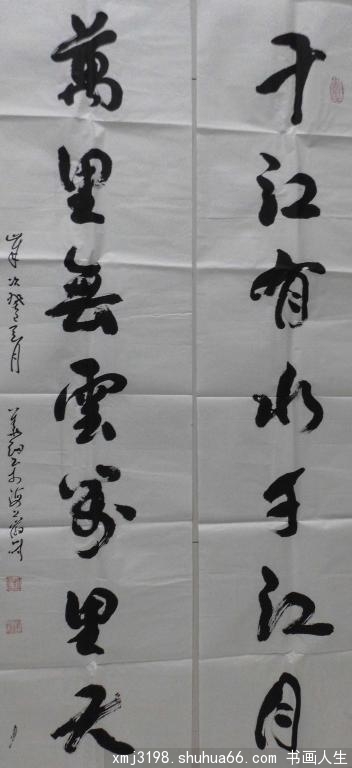 千江有水千江月
萬里無雲萬里天
xmj3198.shuhua66.com 书画人生